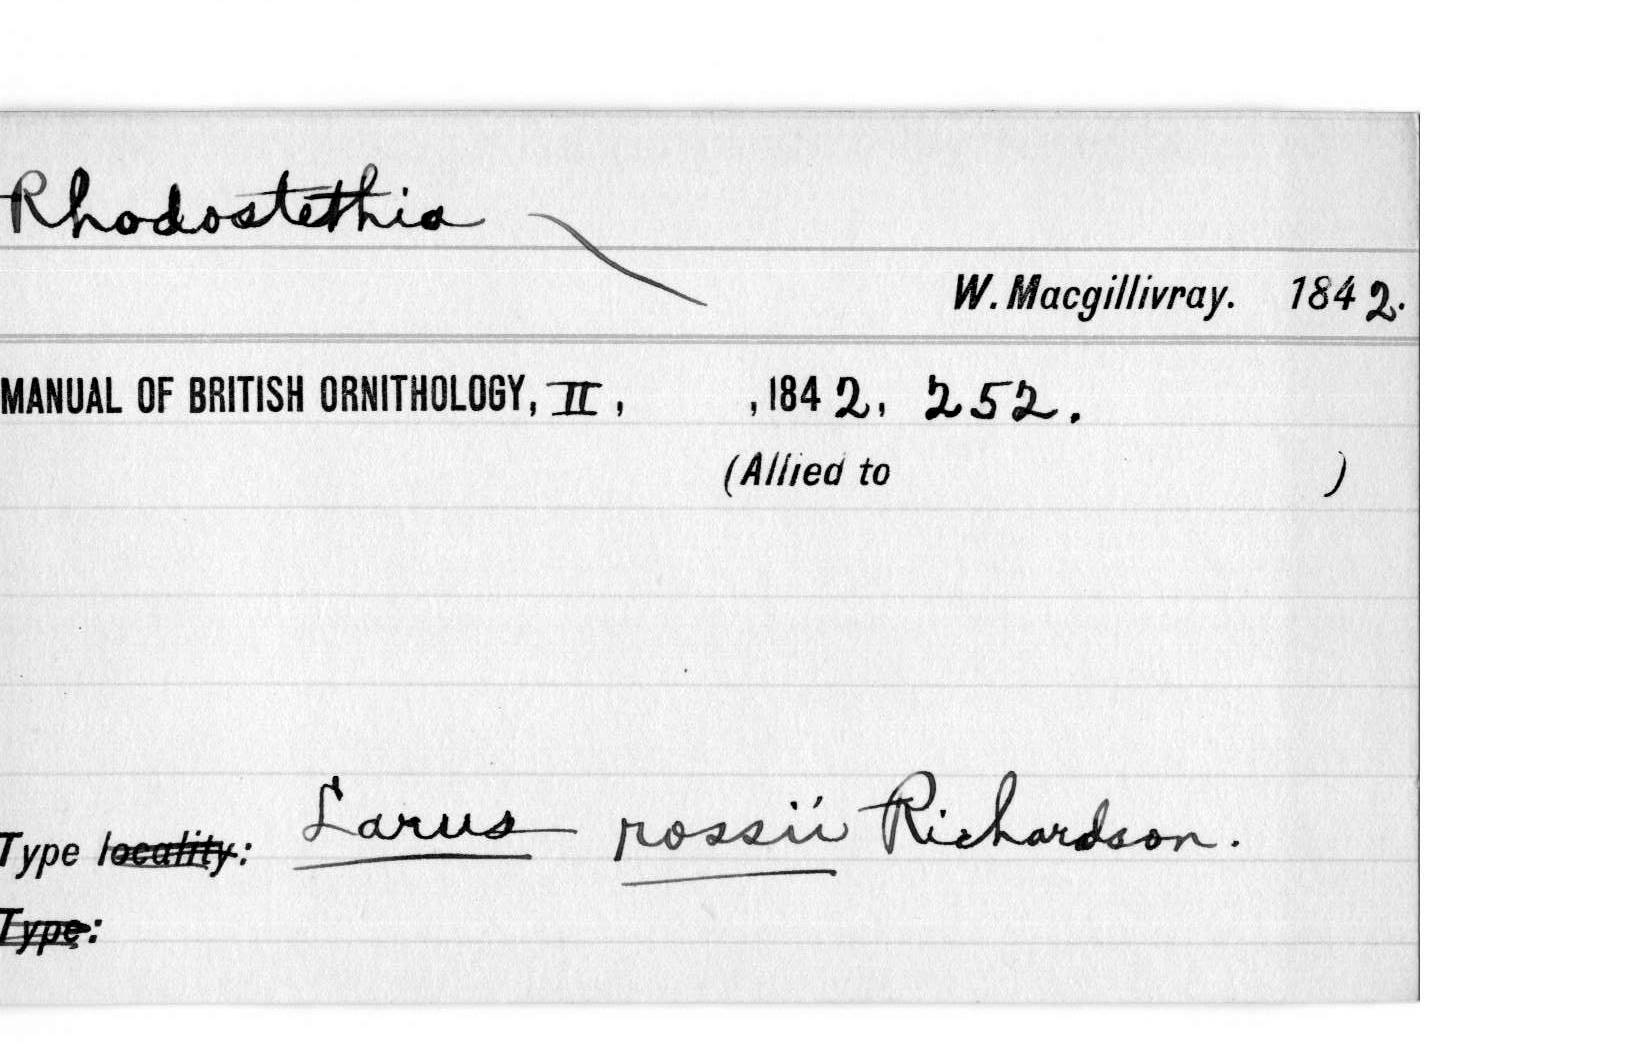 Rhodostethia
W. Macgillivray. 1842.
MANUAL OF BRITISH ORNITHOLOGY, II, , 1842, 252.
(Allied to )
Type locality: Larus rossii Richardson.
Type: